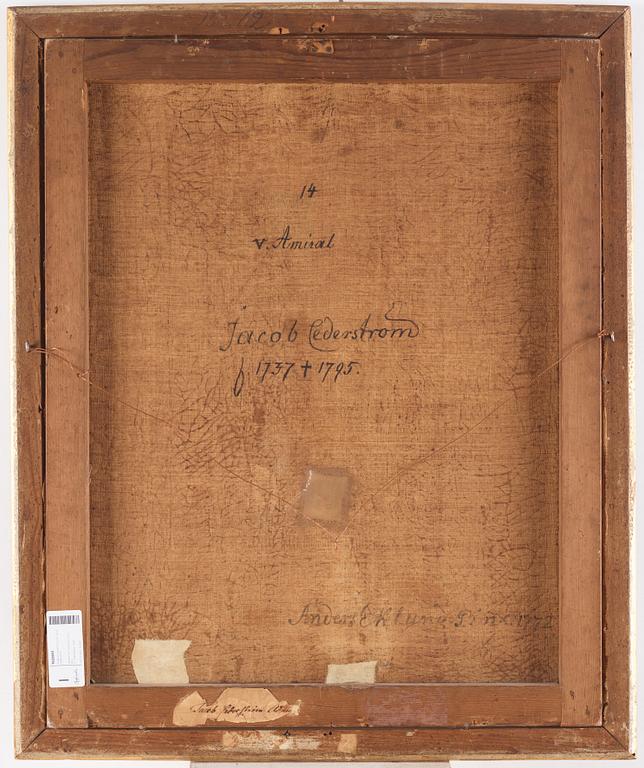 14
v. Amiral
Jacob Cederström
f. 1737 † 1795.
Anders Eklund Pinx: 1772
Jacob Cederström